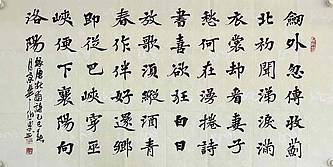 劍外忽傳收薊
北初聞涕淚滿
衣裳却看妻子
愁何在漫捲詩
書喜欲狂白日
放歌須縱酒青
春作伴好還鄉
即從巴峽穿巫
峽便下襄陽向
洛陽
錄唐杜甫詩乙巳